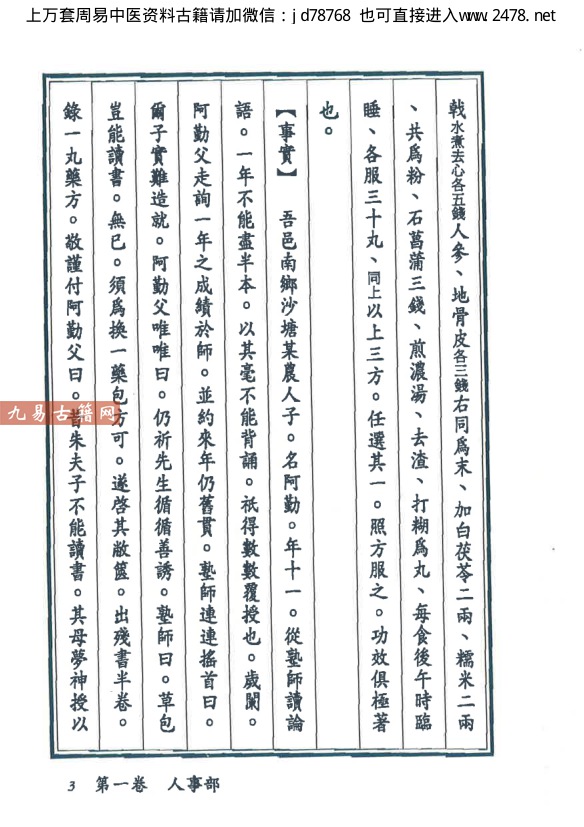 上万套周易中医资料古籍请加微信：jd78768 也可直接进入www.2478.net
戟水煮去心各五錢人參、地骨皮各三錢右同爲末、加白茯苓二兩、糯米二兩
、共爲粉、石菖蒲三錢、煎濃湯、去渣、打糊爲丸、每食後午時臨
睡、各服三十丸、同上以上三方。任選其一。照方服之。功效俱極著
也。
【事實】　吾邑南鄉沙塘某農人子。名阿勤。年十一。從塾師讀論
語。一年不能盡半本。以其毫不能背誦。祇得數數覆授也。歲闌。
阿勤父走詢一年之成績於師。並約來年仍舊貫。塾師連連搖首曰。
爾子實難造就。阿勤父唯唯曰。仍祈先生循循善誘。塾師曰。草包
豈能讀書。無已。須爲換一藥包方可。遂啓其敝篋。出殘書半卷。
錄一丸藥方。敬謹付阿勤父曰。昔朱夫子不能讀書。其母夢神授以
九易古籍网
3 第一卷 人事部